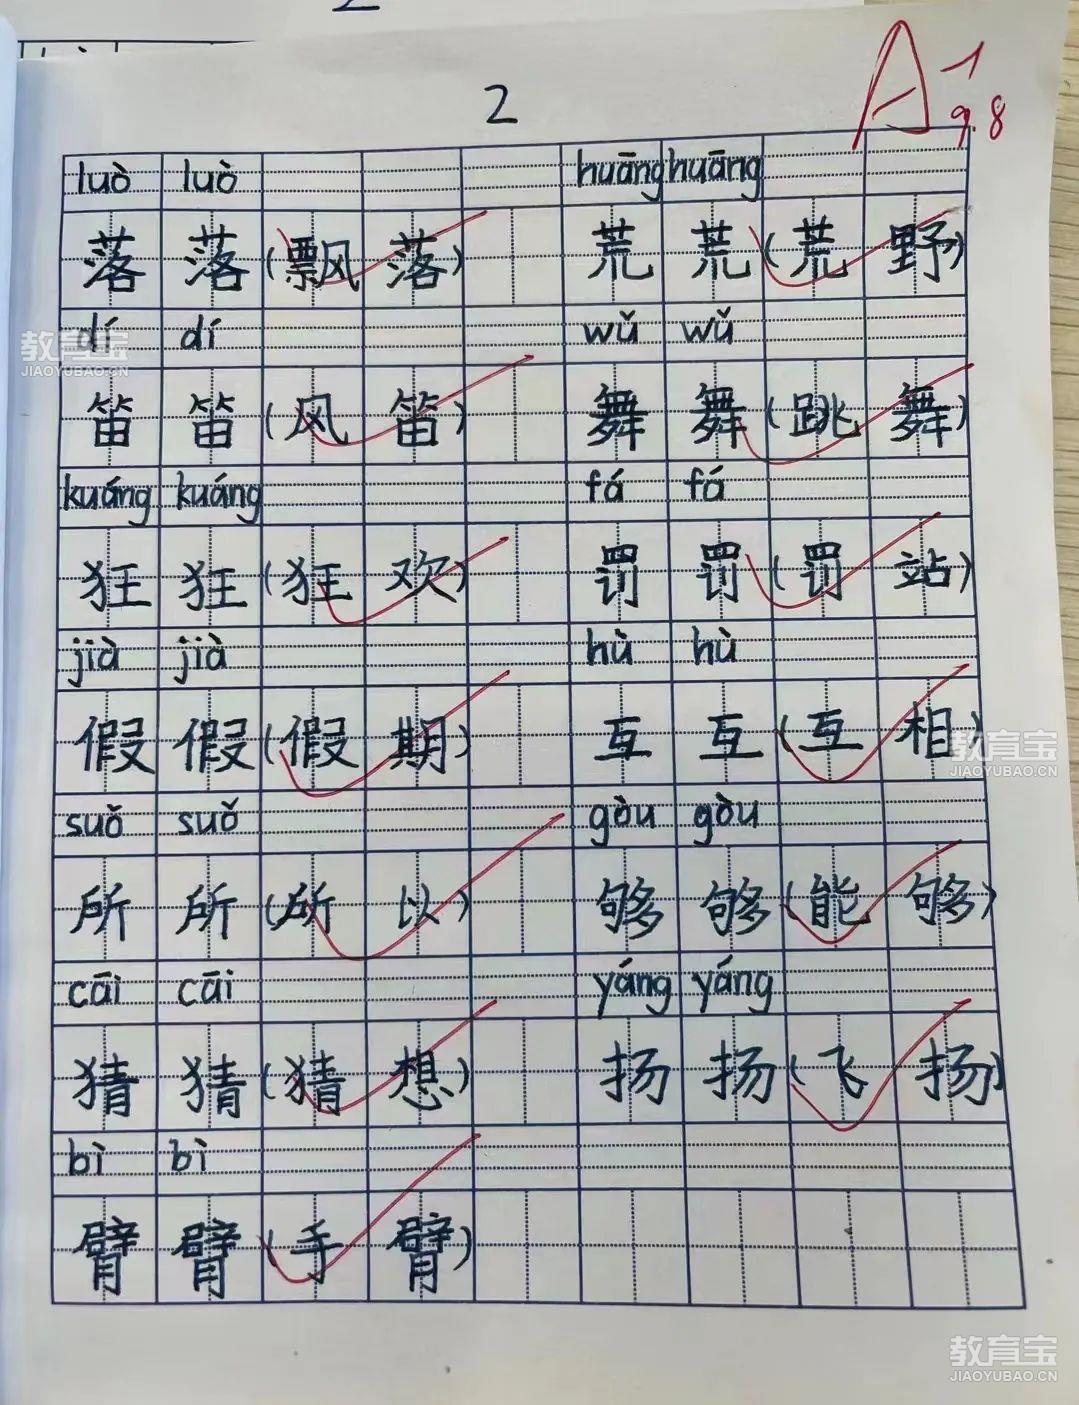 2
A-
9.8
luò luò huāng huāng
落 落 (飘 落) 荒 荒 (荒 野)
dí dí wǔ wǔ
笛 笛 (风 笛) 舞 舞 (跳 舞)
kuáng kuáng fá fá
狂 狂 (狂 欢) 罚 罚 (罚 站)
jià jià hù hù
假 假 (假 期) 互 互 (互 相)
suǒ suǒ gòu gòu
所 所 (所 以) 够 够 (能 够)
cāi cāi yáng yáng
猜 猜 (猜 想) 扬 扬 (飞 扬)
bì bì
臂 臂 (手 臂)
教育宝
JIAOYUBAO.CN
教育宝
JIAOYUBAO.CN
教育宝
JIAOYUBAO.CN